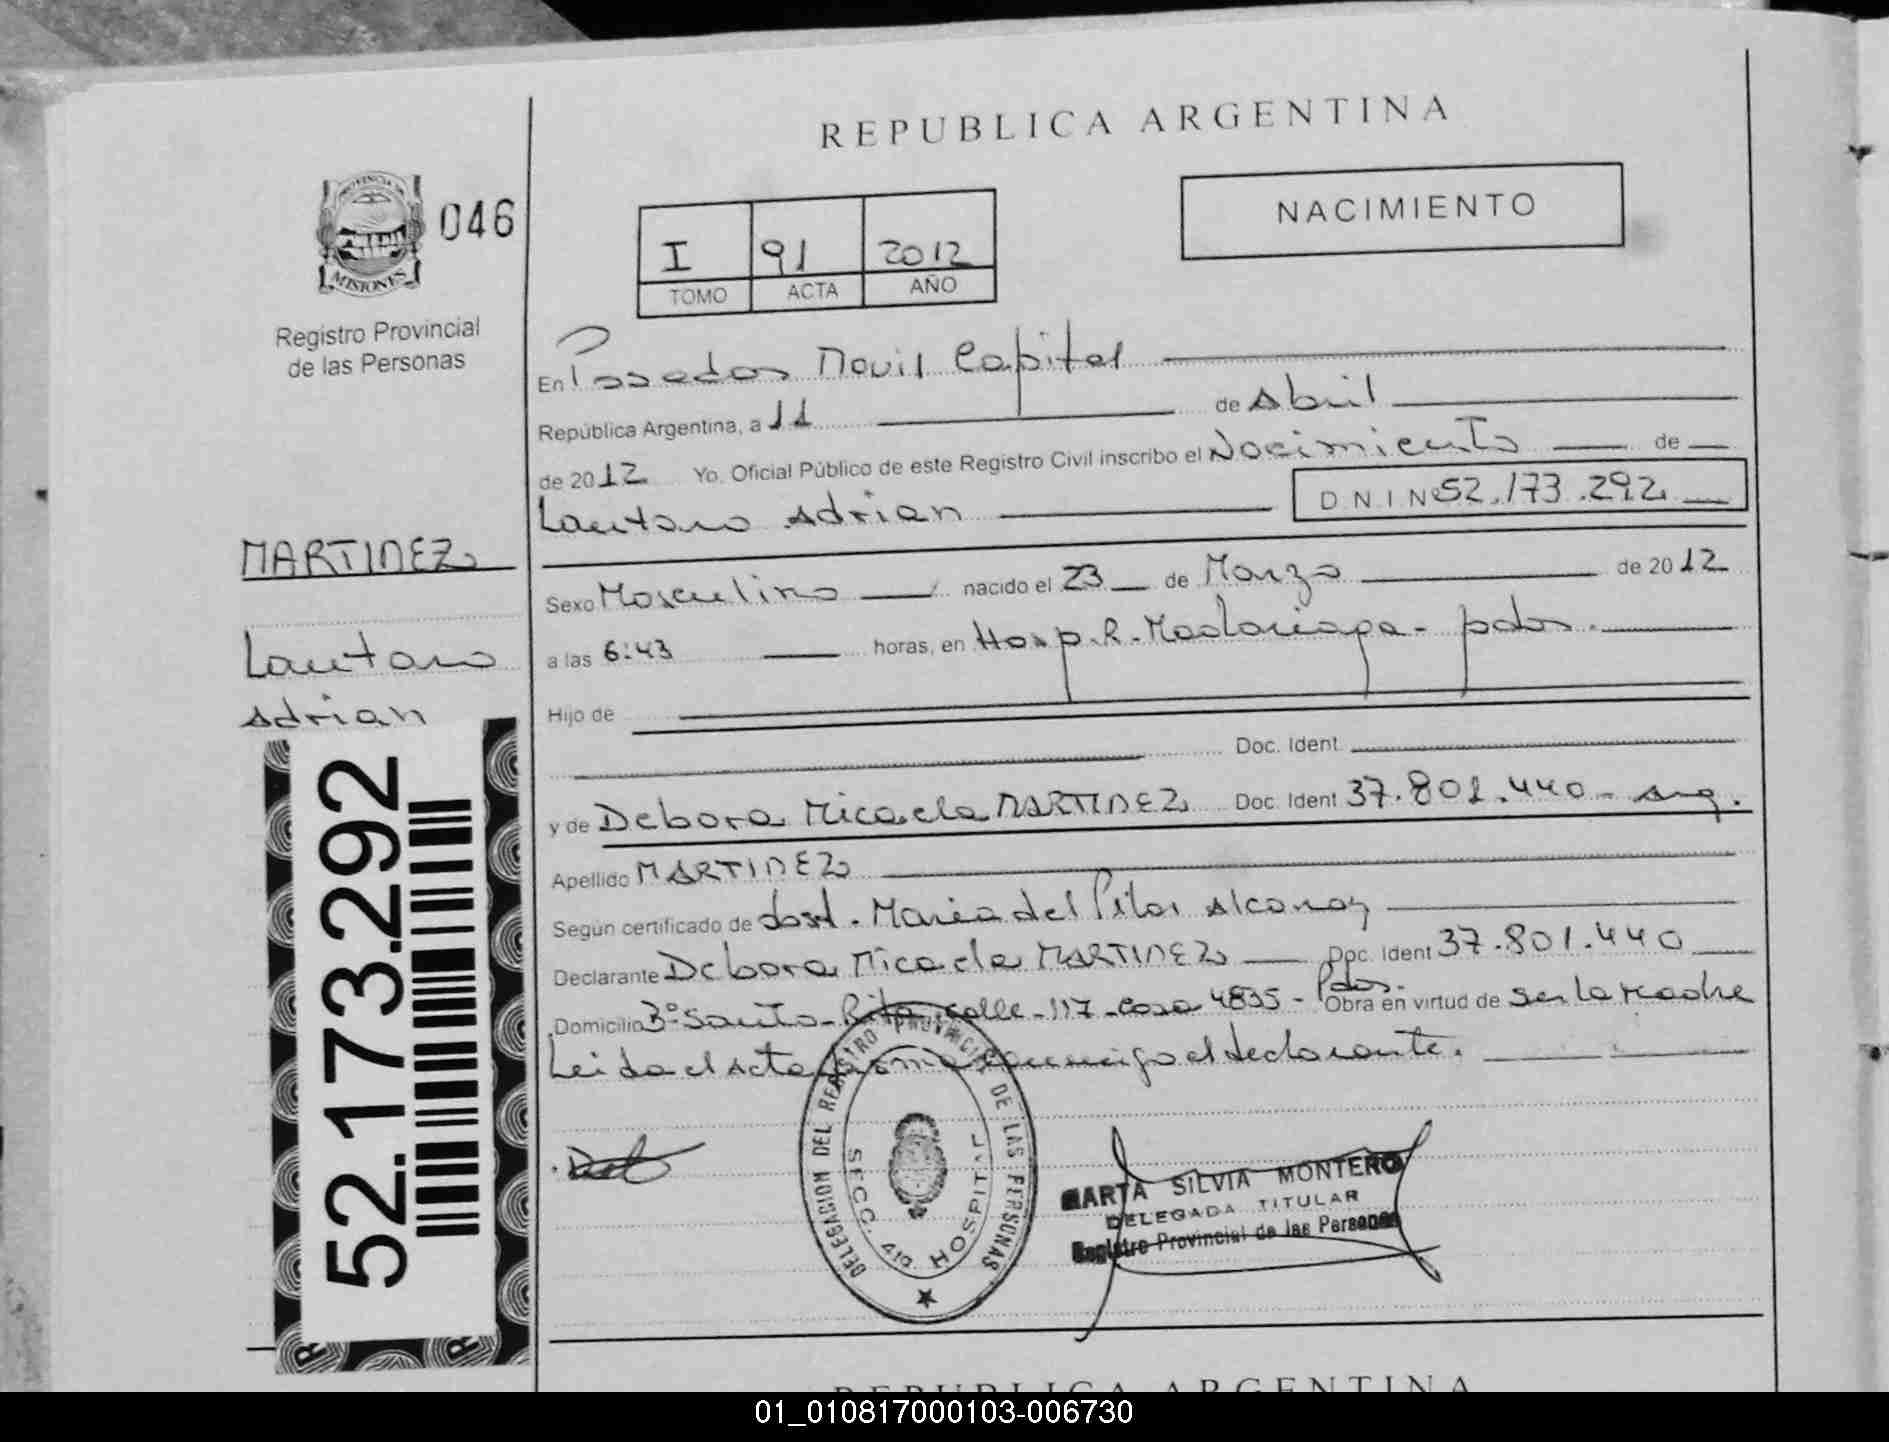 REPUBLICA ARGENTINA
NACIMIENTO
PROVINCIA DE
MISIONES
046
Registro Provincial
de las Personas
I 91 2012
TOMO ACTA AÑO
En Posadas Movil Capital
República Argentina, a 11 de Abril
de 2012 Yo. Oficial Público de este Registro Civil inscribo el Nacimiento de
Lautaro Adrian D.N.I Nº 52.173.292
MARTINEZ
Lautaro
Adrian
52.173.292
Sexo Masculino nacido el 23 de Marzo de 2012
a las 6:43 horas, en Hosp. R. Madariaga - pdas.
Hijo de
Doc. Ident.
y de Debora Micaela MARTINEZ Doc. Ident 37.801.440 - Arg.
Apellido MARTINEZ
Según certificado de Obst. Maria del Pilar Alcaraz
Declarante Debora Micaela MARTINEZ Doc. Ident 37.801.440
Domicilio Bº Santa Rita - calle - 117 - casa 4835 - Pdas. Obra en virtud de ser la madre
Leida el Acta firma conmigo el declarante.
DELEGACION DEL REGISTRO PROVINCIAL DE LAS PERSONAS
SECC. 419 HOSPITAL
MARTA SILVIA MONTERO
DELEGADA TITULAR
Registro Provincial de las Personas
REPUBLICA ARGENTINA
01_010817000103-006730